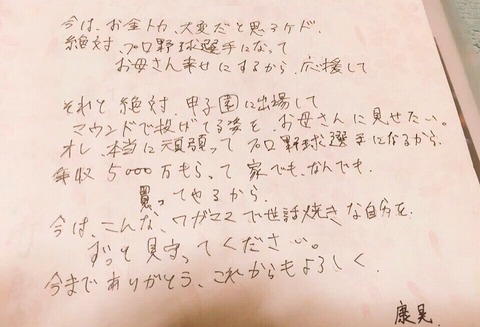 今は、お金トカ、大変だと思うケド、
絶対、プロ野球選手になって
お母さん幸せにするから、応援して
それと絶対、甲子園に出場して
マウンドで投げてる姿を、お母さんに見せたい。
オレ、本当に頑張ってプロ野球選手になるから、
年収5000万もらって家でも、なんでも、
買ってやるから、
今は、こんな、ワガママで世話焼きな自分を、
ずっと見守ってください。
今までありがとう、これからもよろしく、
康晃